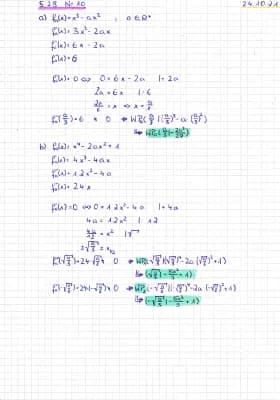 S.28 Nr. 10 24.10.21
a) fₐ(x) = x³ - ax² ; a ∈ ℝ⁺
fₐ'(x) = 3x² - 2ax
fₐ''(x) = 6x - 2a
fₐ'''(x) = 6
fₐ''(x) = 0 ⇔ 0 = 6x - 2a | + 2a
2a = 6x | : 6
2a/6 = x ⇔ x = a/3
fₐ'''(a/3) = 6 ≠ 0 ⇒ WPₐ(a/3 | (a/3)³ - a·(a/3)²)
⇒ WPₐ(a/3 | -2a³/27)
b) fₐ(x) = x⁴ - 2ax² + 1
fₐ'(x) = 4x³ - 4ax
fₐ''(x) = 12x² - 4a
fₐ'''(x) = 24x
fₐ''(x) = 0 ⇔ 0 = 12x² - 4a | + 4a
4a = 12x² | : 12
4a/12 = x² | √
±√(a/3) = x₁,₂
fₐ'''(√(a/3)) = 24·√(a/3) ≠ 0 ⇒ WPₐ(√(a/3) | (√(a/3))⁴ - 2a·(√(a/3))² + 1)
⇒ (√(a/3) | -5a²/9 + 1)
fₐ'''(-√(a/3)) = 24·(-√(a/3)) ≠ 0 ⇒ WPₐ(-√(a/3) | (-√(a/3))⁴ - 2a·(-√(a/3))² + 1)
⇒ (-√(a/3) | -5a²/9 + 1)